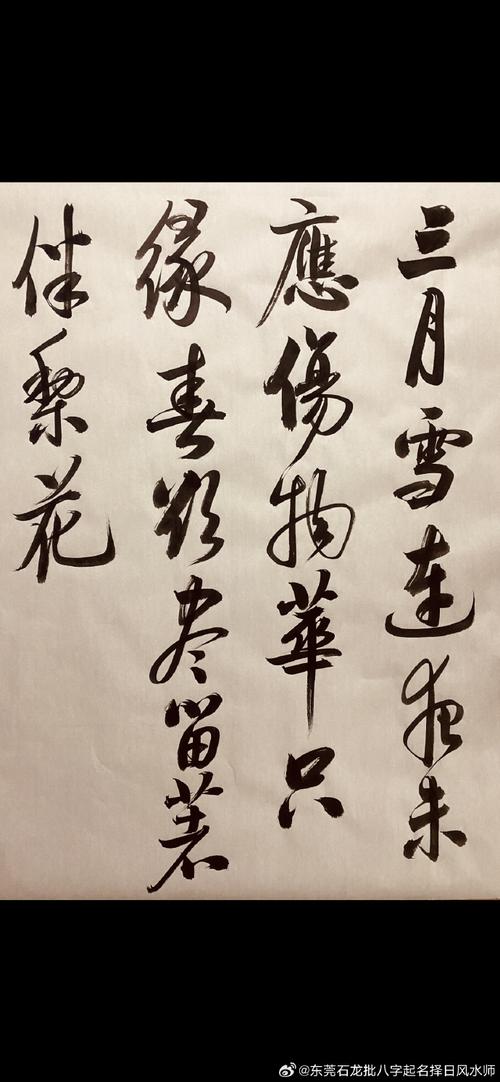 三月雪連夜未
應傷物華只
緣春欲盡留著
伴梨花
@东莞石龙批八字起名择日风水师